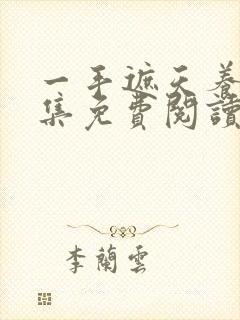 一手遮天養
集免費閱讀
李蘭雲